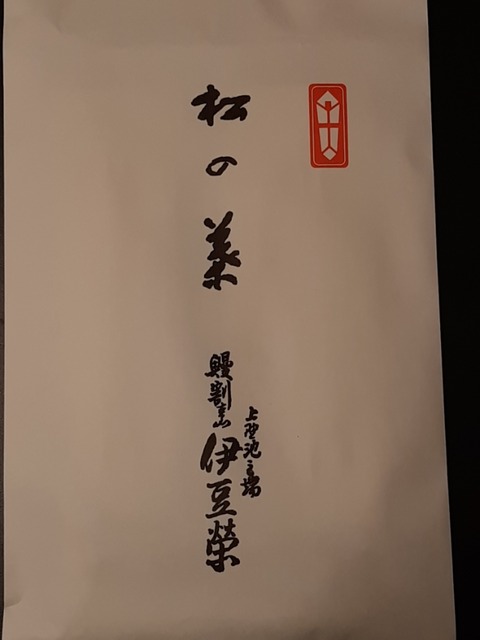 松の葉
上野池之端
鰻割烹
伊豆榮